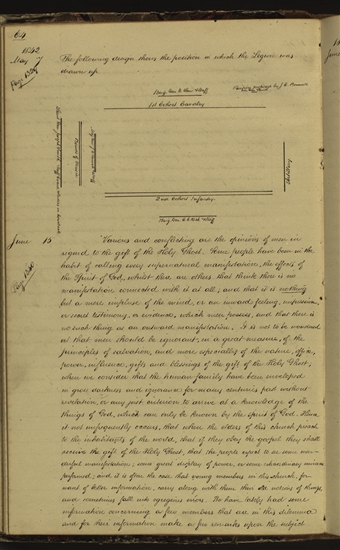 64
1842
May 7
The following design shows the position in which the Legion was
drawn up.
1st Cohort Cavalry
2nd Cohort Infantry
June 15
"Various and conflicting are the opinions of men in
regard to the gift of the Holy Ghost. Some people have been in the
habit of calling every supernatural manifestation, the effects of
the Spirit of God, whilst there are others that think there is no
manifestation connected with it at all; and that it is nothing
but a mere impulse of the mind, or an inward feeling, impression,
or secret testimony, or evidence, which men possess, and that there is
no such thing as an outward manifestation. It is not to be wondered
at that men should be ignorant, in a great measure, of the
principles of salvation, and more especially of the nature, office,
power, influence, gifts and blessings of the gift of the Holy Ghost;
when we consider that the human family have been enveloped
in gross darkness and ignorance for many centuries past without
revelation, or any just criterion to arrive at a knowledge of the
things of God, which can only be known by the Spirit of God. Hence
it not unfrequently occurs, that when the elders of this church preach
to the inhabitants of the world, that if they obey the gospel they shall
receive the gift of the Holy Ghost, that the people expect to see some won-
derful manifestation; some great display of power, or some extraordinary miracle
performed; and it is often the case that young members in this church, for
want of better information, carry along with them their old notions of things,
and sometimes fall into egregious errors. We have lately had some
information concerning a few members that are in this dilemma
and for their information make a few remarks upon the subject